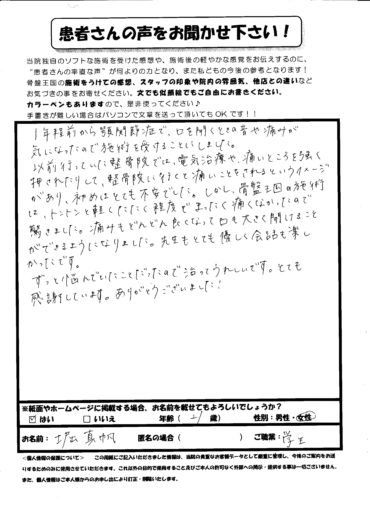 患者さんの声をお聞かせ下さい！
当院独自のソフトな施術を受けた感想や、施術後の軽やかな感覚をお伝えするのに、
“患者さんの率直な声” が何よりの力となり、また私どもの今後の参考となります！
骨盤王国の施術をうけての感想、スタッフの印象や院内の雰囲気、他店との違いなど
お気づきの事をお寄せください。文でも似顔絵でもご自由にお書きください。
カラーペンもありますので、是非使ってください♪
手書きが難しい場合はパソコンで文章を送って頂いてもＯＫです！！
１年程前から顎関節症で、口を開くときの音や痛みが
気になったので施術を受けることにしました。
以前行っていた整骨院では、電気治療や、痛いところを強く
押されたりして、整骨院に行くと痛いことをされるというイメージ
があり、初めはとても不安でした。しかし、骨盤王国の施術
は、トントンと軽くたたく程度でまったく痛くなかったので
驚きました。痛みもどんどん良くなって口も大きく開けること
ができるようになりました。先生もとても優しく会話も楽し
かったです。
ずっと悩んでいたことだったので治ってうれしいです。とても
感謝しています。ありがとうございました！
※紙面やホームページに掲載する場合、お名前を載せてもよろしいでしょうか？
☑はい　□いいえ　年齢（ 21 歳）　性別：男性・女性
お名前：　真帆　匿名の場合（　　）　ご職業：学生
＜個人情報の保護について＞　この用紙にご記入いただきました情報は、当院の貴重なお客様データとして厳重に管理し、今後のご案内をお送
りするためのみに使用させていただきます。これ以外の目的で使用すること及びご本人の許可なく外部への開示・提供する事は一切ございません。
また、個人情報はご本人様からのお申し出により訂正・削除いたします。